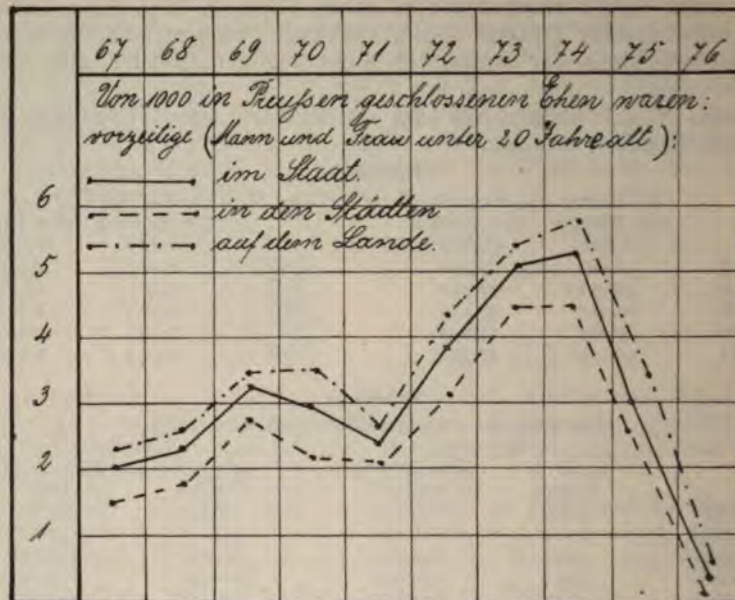 67 68 69 70 71 72 73 74 75 76
Von 1000 in Preußen geschlossenen Ehen waren:
vorzeitige (Mann und Frau unter 20 Jahre alt):
im Staat.
6
in den Städten
auf dem Lande.
5
4
3
2
1